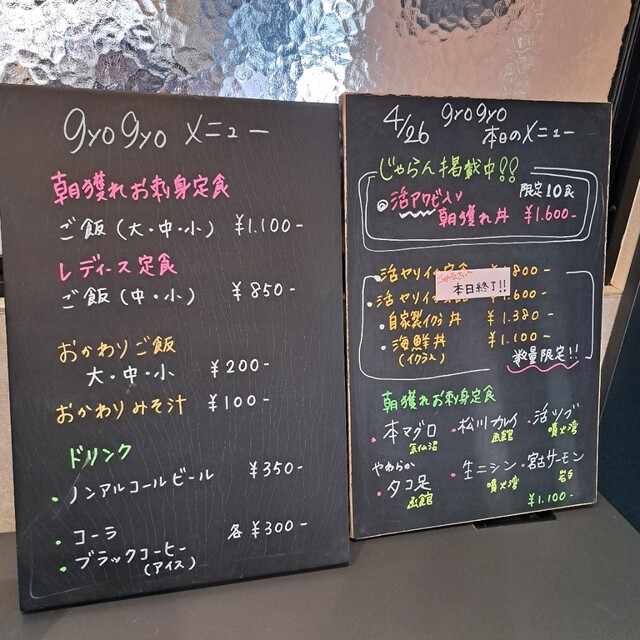 gyogyo メニュー
朝獲れお刺身定食
ご飯(大・中・小) ¥1.100-
レディース定食
ご飯(中・小) ¥850-
おかわりご飯
大・中・小 ¥200-
おかわりみそ汁 ¥100-
ドリンク
・ノンアルコールビール ¥350-
・コーラ 各¥300-
・ブラックコーヒー
(アイス)
4/26 gyogyo
本日のメニュー
じゃらん掲載中!!
活アワビ入り 限定10食
朝獲れ丼 ¥1.600-
・活ヤリイカ 800-
・活ヤリイ 600-
本日終了!!
・自家製イクラ丼 ¥1.380-
・海鮮丼 ¥1.100-
(イクラ入) 数量限定!!
朝獲れお刺身定食
・本マグロ ・松川カレイ ・活ツブ
気仙沼 函館 噴火湾
やわらか
・タコ足 ・生ニシン ・宮古サーモン
函館 噴火湾 岩手
¥1.100-